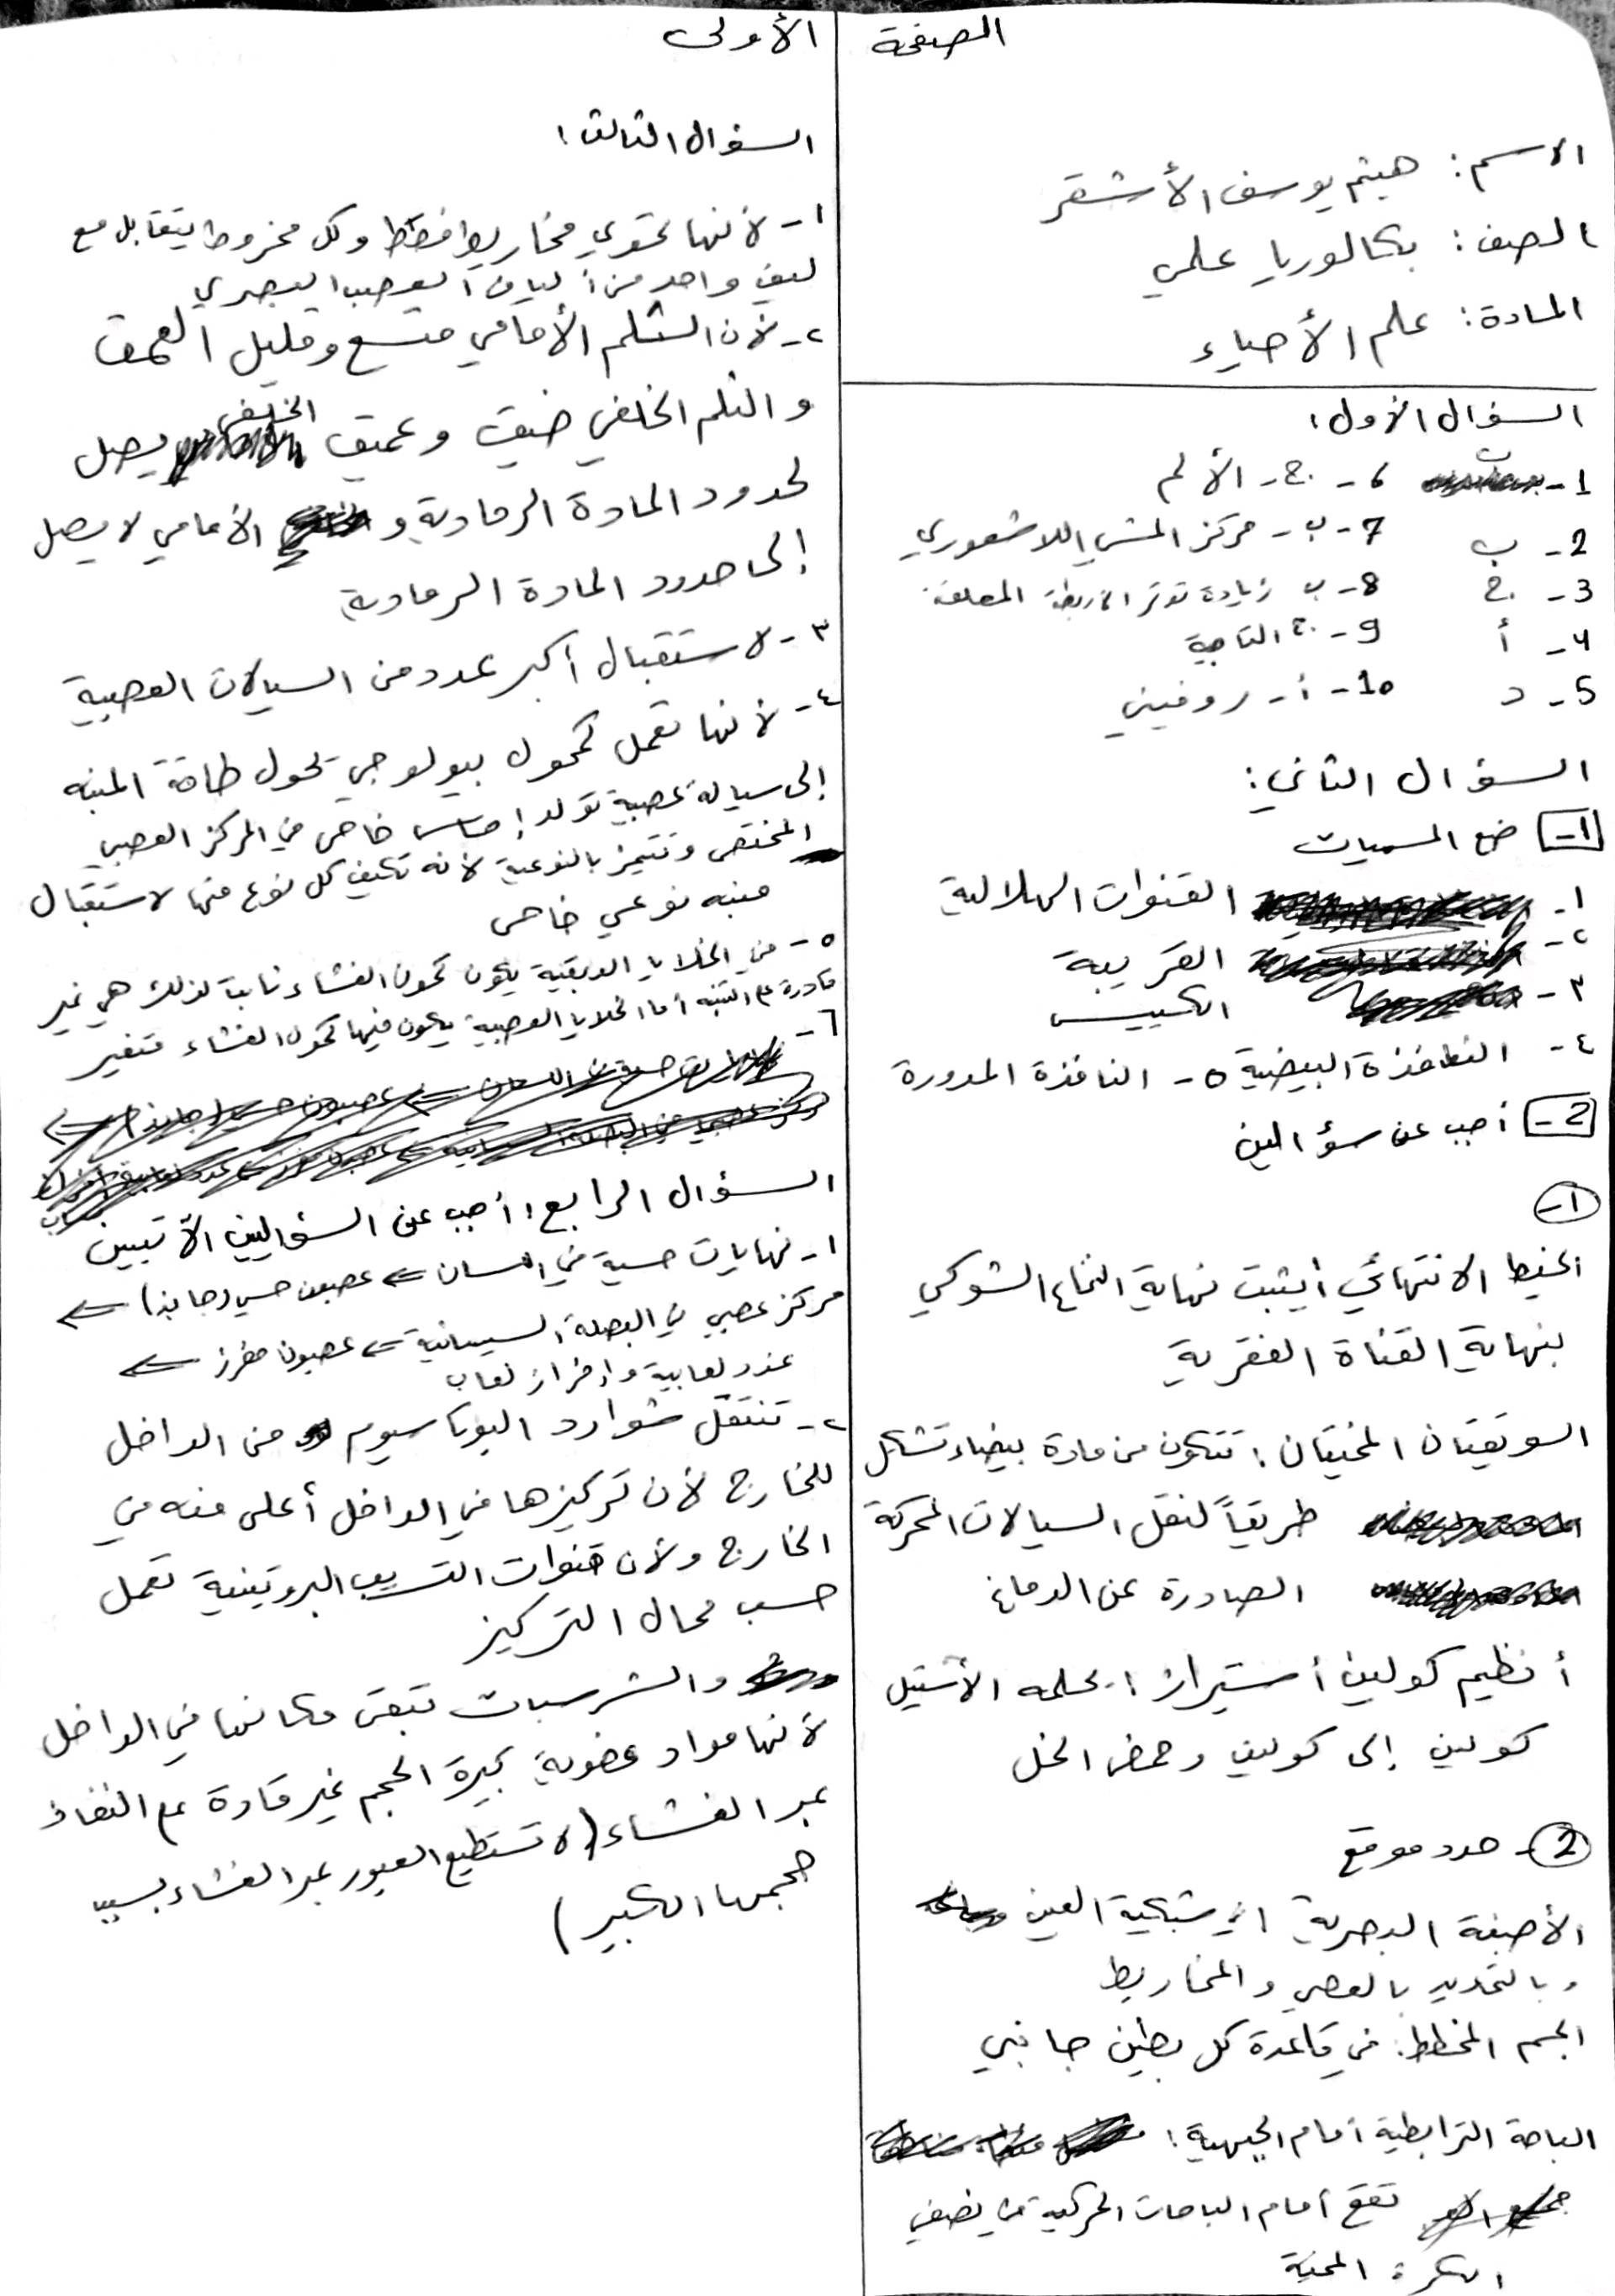 الصفحة الأولى
الاسم: هيثم يوسف الأشقر
الصف: بكالوريا علمي
المادة: علم الأحياء
السؤال الأول:
1- ب
2- ب
3- ج
4- أ
5- د
6- ج- الألم
7- ب- مركز المشي اللاشعوري
8- ب زيادة توتر الأربطة المعلقة
9- ج التاجية
10- أ- روفيني
السؤال الثاني:
1- ضع المسميات
١- القنوات الهلالية
٢- القريبة
٣- الكييس
٤- النافذة البيضية ٥- النافذة المدورة
2- أجب عن سؤالين
1-
الخيط الانتهائي: يثبت نهاية النخاع الشوكي
بنهاية القناة الفقرية
السويقتان المخيتان: تتكون من مادة بيضاء تشكل
طريقاً لنقل السيالات المحركة
الصادرة عن الدماغ
أنظيم كولين أستيراز: يحلمه الأستيل
كولين إلى كولين وحمض الخل
2- حدد موقع
الأصبغة البصرية: في شبكية العين
وبالتحديد بالعصي والمخاريط
الجسم المخطط: في قاعدة كل بطين جانبي
الباحة الترابطية أمام الجبهية:
تقع أمام الباحات الحركية في نصفي
الكرة المخية
السؤال الثالث:
١- لأنها تحتوي مخاريط فقط وكل مخروط يتقابل مع
ليف واحد من ألياف العصب البصري
٢- لأن الثلم الأمامي متسع وقليل العمق
والثلم الخلفي ضيق وعميق الخلفي يصل
لحدود المادة الرمادية و الأمامي لا يصل
إلى حدود المادة الرمادية
٣- لاستقبال أكبر عدد من السيالات العصبية
٤- لأنها تعمل كمحول بيولوجي تحول طاقة المنبه
إلى سيالة عصبية تولد إحساس خاص في المركز العصبي
المختص وتتميز بالنوعية لأنه تكيف كل نوع منها لاستقبال
منبه نوعي خاص
٥- في الخلايا الدبقية يكون كمون الغشاء ثابتاً لذلك هي غير
قادرة على التنبه أما الخلايا العصبية يكون فيها كمون الغشاء متغير
٦-
السؤال الرابع: أجب عن السؤاليين الآتيين
١- نهايات حسية في اللسان ⇐ عصبون حسي (جابذ) ⇐
مركز عصبي في البصلة السيسائية ⇐ عصبون مفرز ⇐
غدد لعابية وإفراز لعاب
٢- تنتقل شوارد البوتاسيوم من الداخل
للخارج لأن تركيزها في الداخل أعلى منه في
الخارج ولأن قنوات التسريب البروتينية تعمل
حسب ممال التركيز
والشرسبات تبقى مكانها في الداخل
لأنها مواد عضوية كبيرة الحجم غير قادرة على النفاذ
عبر الغشاء (لا تستطيع العبور عبر الغشاء بسبب
حجمها الكبير)